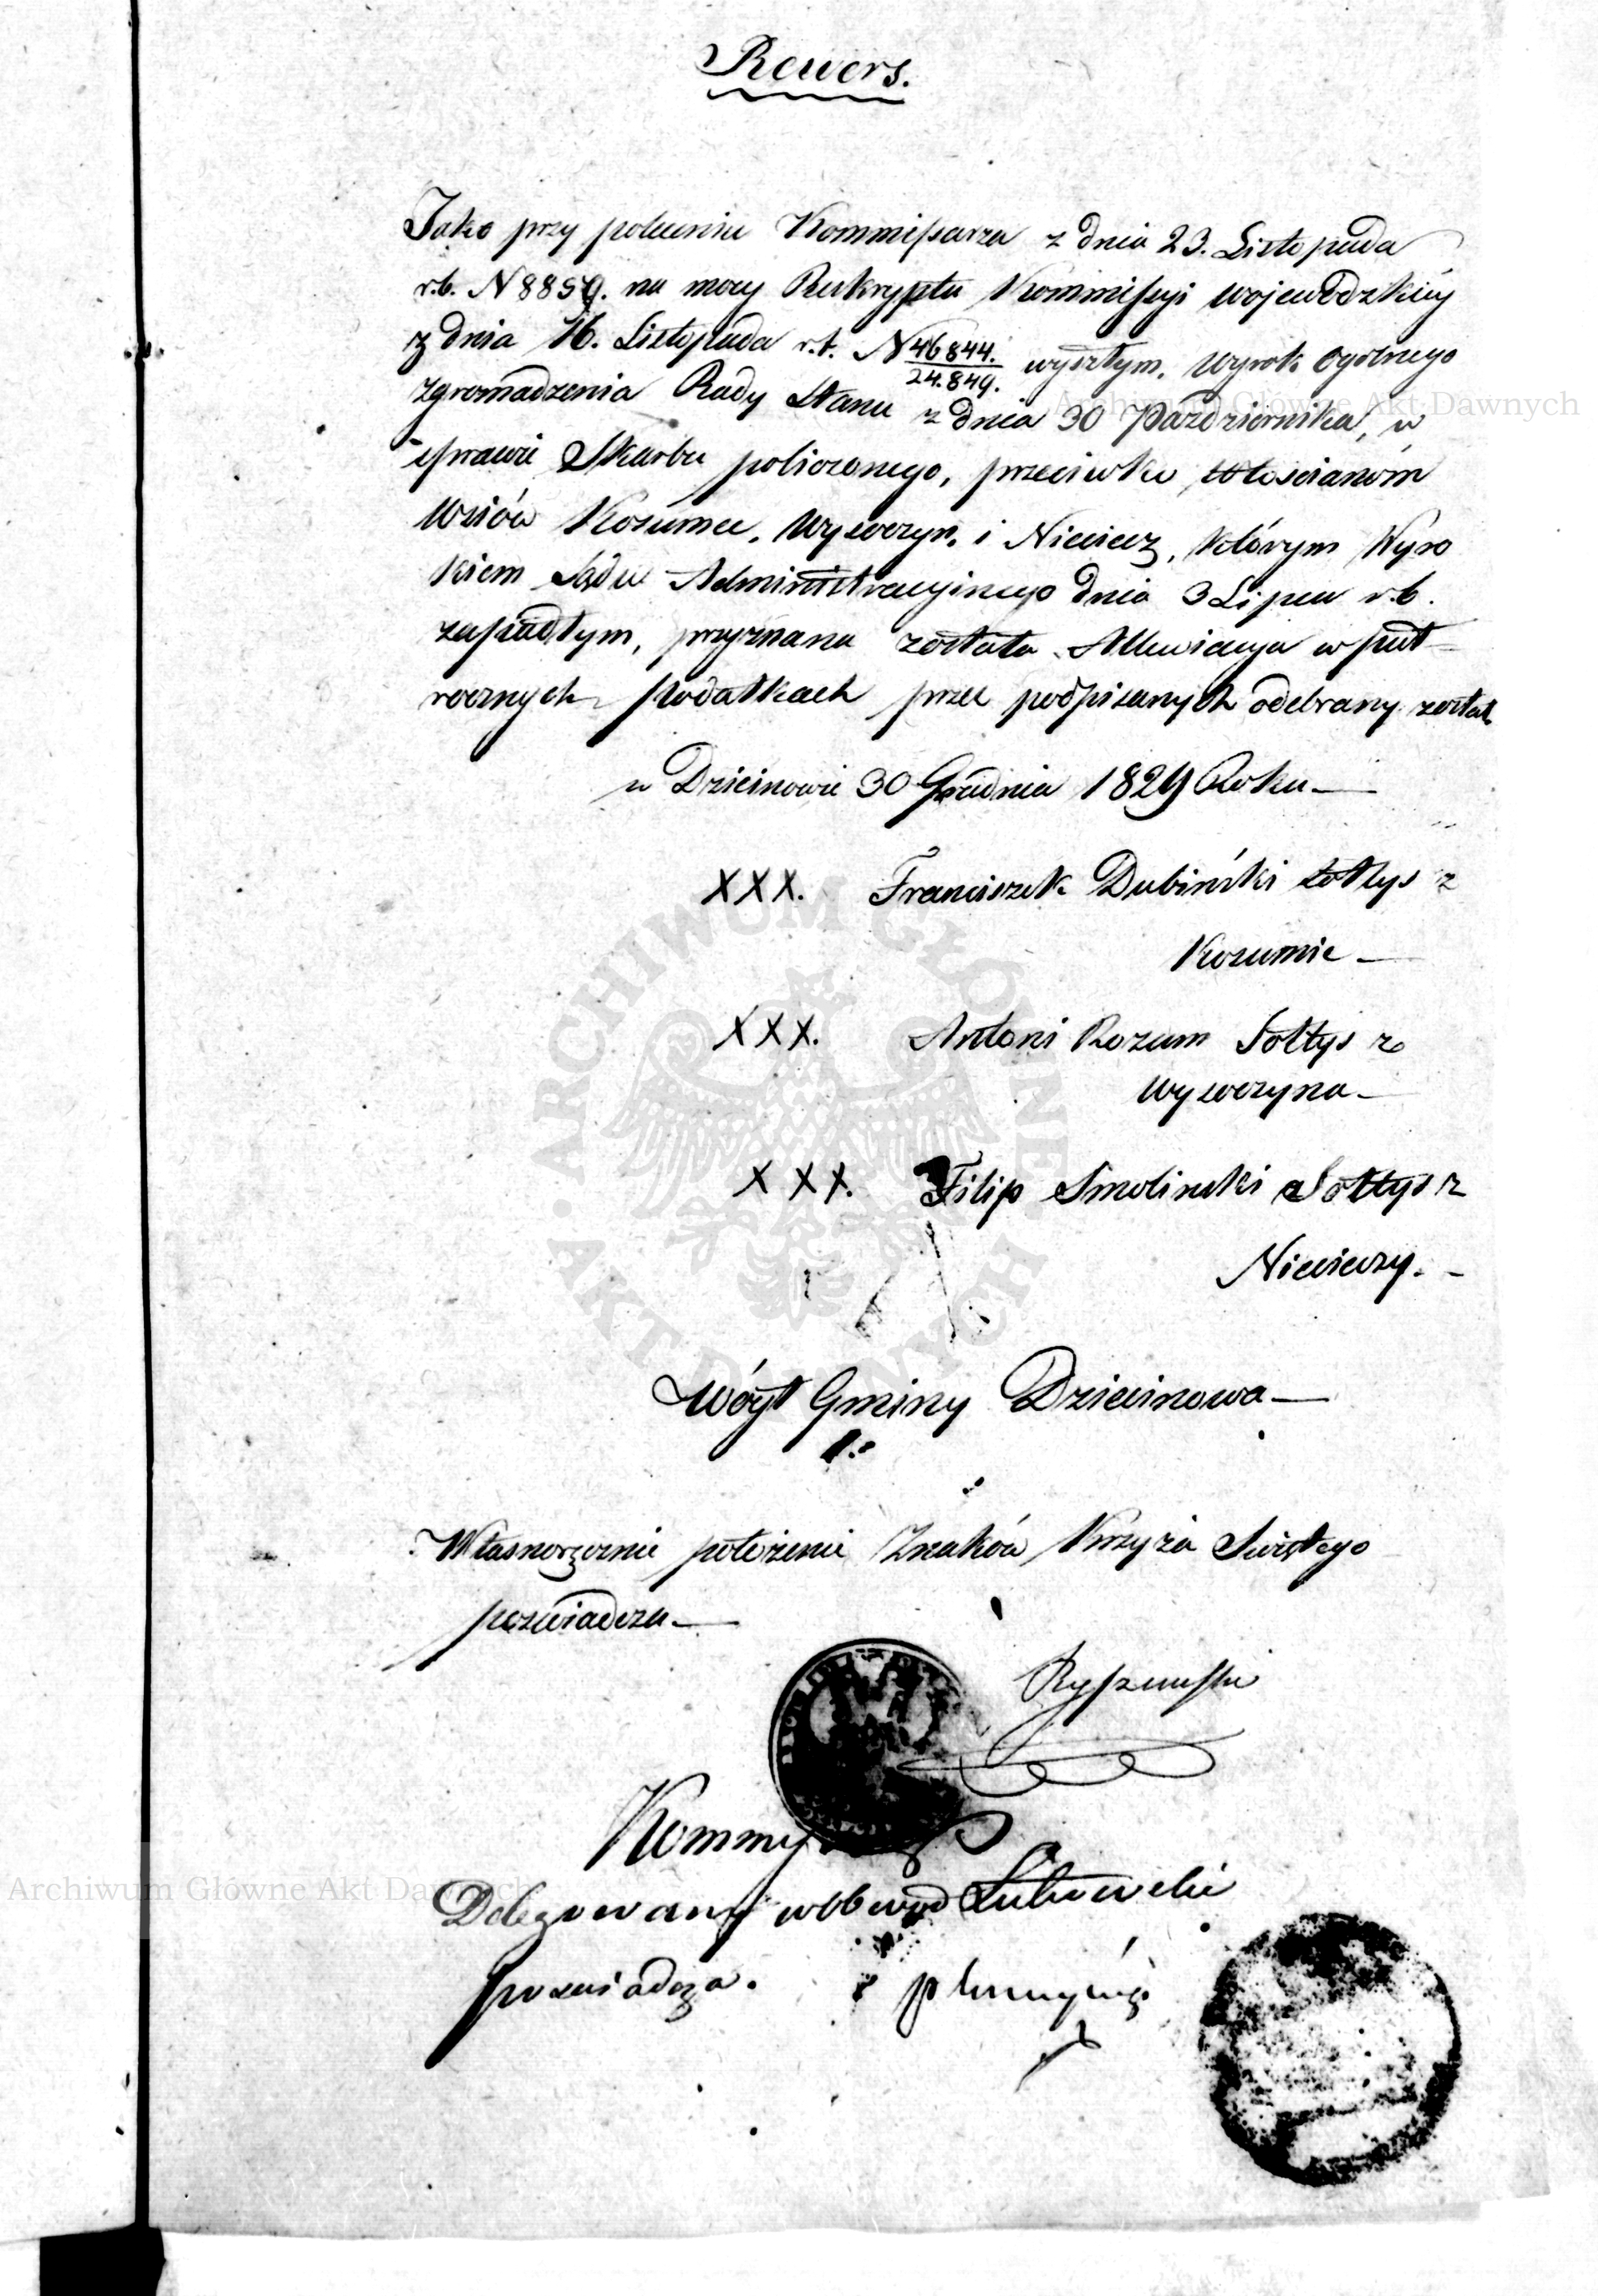 Rewers.
Jako przy poleceniu Kommissarza z dnia 23. Listopada
r.b. N 8859. na mocy Reskryptu Kommissyi Wojewódzkiéy
z dnia 16. Listopada r.b. N 46844./24.849. wyszłym, Wyrok Ogólnego
Zgromadzenia Rady Stanu z dnia 30 Października, w
sprawie Skarbu publicznego, przeciwko Włościanom
Wsiów Kosumce, Wysoczyn, i Niecieez, którym Wyro
kiem Sądu Administracyjnego dnia 3 Lipca r.b.
zapadłym, przyznana została Allewiacya w
rocznych podatkach przez podpisanych odebrany został
w Dziecinowie 30 Grudnia 1829 Roku
XXX. Franciszek Dubiński Sołtys z
Kosumic
XXX. Antoni Rozum Sołtys z
Wysoczyna
XXX. Filip Smolinski Sołtys z
Niecieczy.
Wóyt Gminy Dziecinowa
Własnoręcznie położenie Znaków Krzyża Swiętego
poświadcza
Delegowany w Obwod
poswiadcza.
Archiwum Główne Akt Dawnych
ARCHIWUM GŁÓWNE AKT DAWNYCH
Archiwum Główne Akt Dawnych